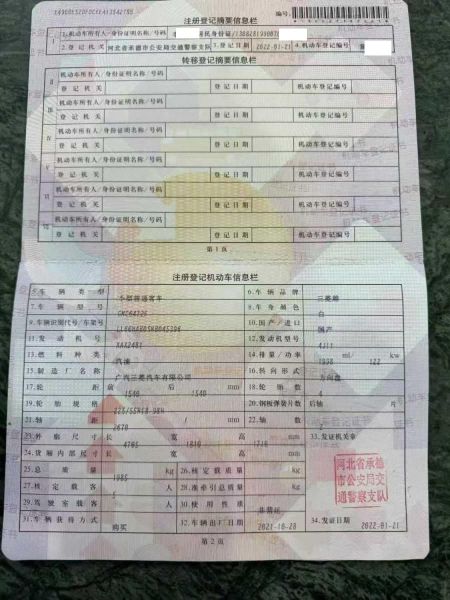 注册登记摘要信息栏
编号:
1.机动车所有人/身份证明名称/号码
居民身份证/
2.登记机关 河北省承德市公安局交通警察支队 3.登记日期 2022-01-21 4.机动车登记编号
转移登记摘要信息栏
机动车所有人/身份证明名称/号码
登记机关 登记日期 机动车登记编号
机动车所有人/身份证明名称/号码
登记机关 登记日期 机动车登记编号
机动车所有人/身份证明名称/号码
登记机关 登记日期 机动车登记编号
机动车所有人/身份证明名称/号码
登记机关 登记日期 机动车登记编号
机动车所有人/身份证明名称/号码
登记机关 登记日期 机动车登记编号
第1页
注册登记机动车信息栏
5.车辆类型 小型普通客车 6.车辆品牌
7.车辆型号 8.车身颜色 白
9.车辆识别代号/车架号 10.国产/进口 国产
11.发动机号 12.发动机型号 4J11
13.燃料种类 汽油 14.排量/功率 1998 ml/ 122 kw
15.制造厂名称 广汽三菱汽车有限公司 16.转向形式 方向盘
17.轮距 前 1540 后 1540 mm 18.轮胎数 4
19.轮胎规格 225/55R18 98H 20.钢板弹簧片数 后轴 片
21.轴距 2670 mm 22.轴数 2
23.外廓尺寸 长 4705 宽 1810 高 1710 mm 33.发证机关章
24.货厢内部尺寸 长 宽 高 mm
25.总质量 1985 kg 26.核定载质量 kg
27.核定载客 5 人 28.准牵引总质量 kg
29.驾驶室载客 人 30.使用性质 非营运
31.车辆获得方式 购买 32.车辆出厂日期 2021-10-28 34.发证日期 2022-01-21
河北省承德
市公安局交
通警察支队
第2页